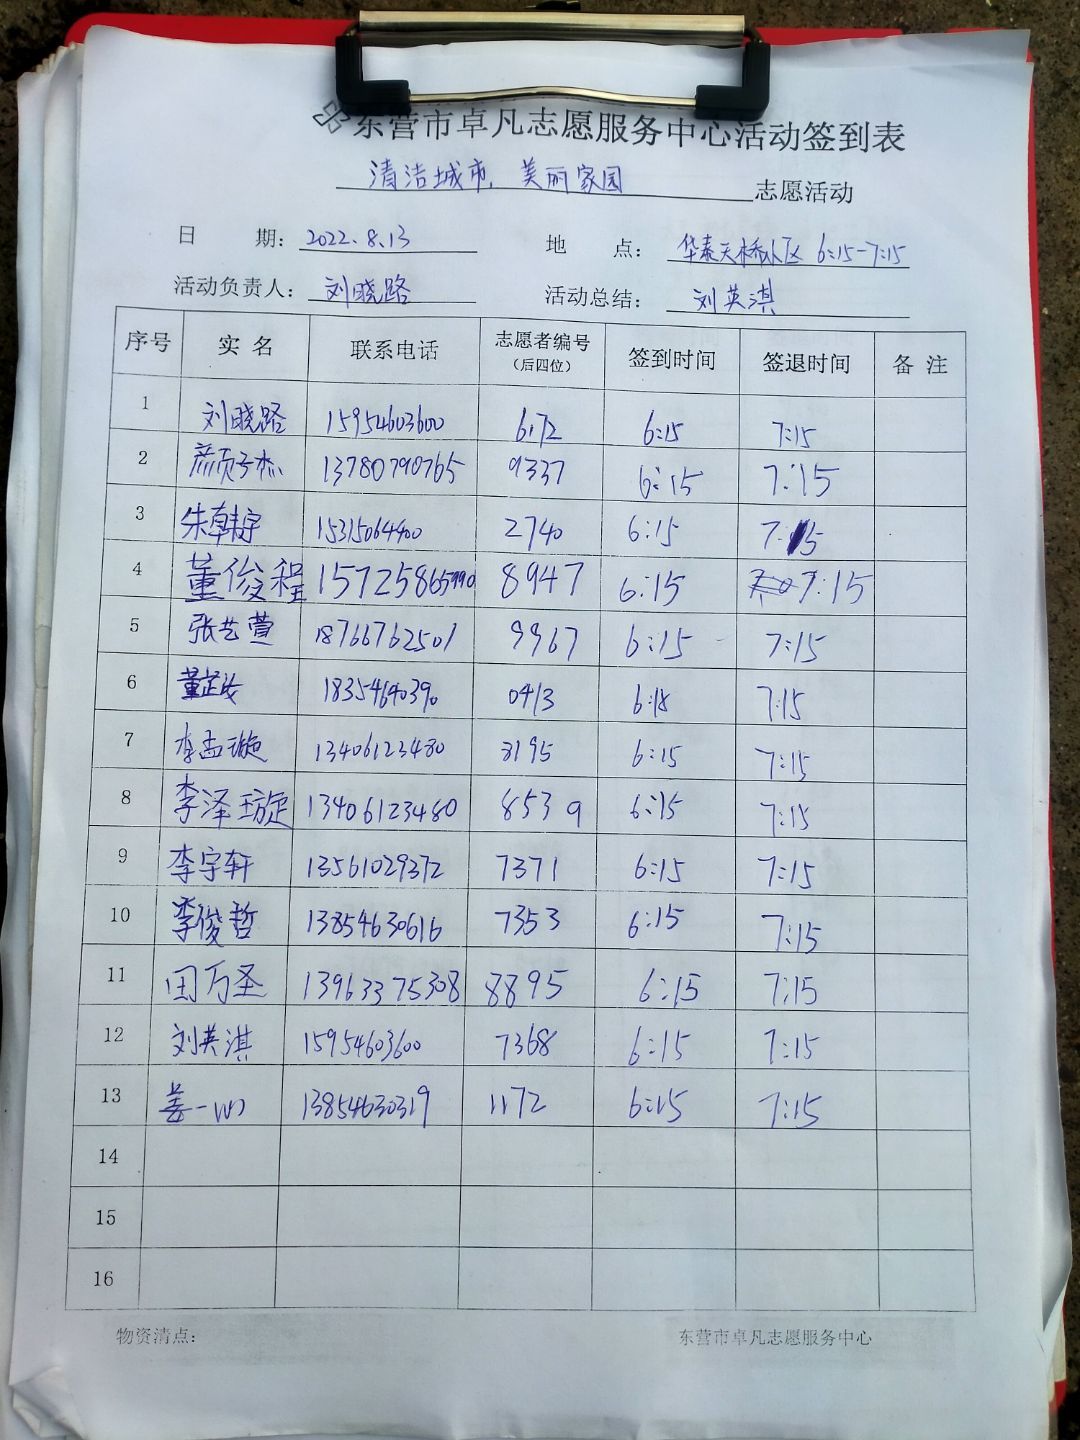 东营市卓凡志愿服务中心活动签到表
清洁城市，美丽家园 志愿活动
日 期：2022.8.13 地 点：华泰天桥小区 6:15-7:15
活动负责人：刘晓路 活动总结：刘英淇
序号 实名 联系电话 志愿者编号（后四位） 签到时间 签退时间 备注
1 刘晓路 15954603600 6172 6:15 7:15
2 颜子杰 13780790765 9337 6:15 7:15
3 朱韩宇 15315064400 2740 6:15 7:15
4 董俊程 8947 6:15 7:15
5 张艺萱 18766762501 9967 6:15 7:15
6 18354640390 0413 6:15 7:15
7 李孟璇 13406123480 3195 6:15 7:15
8 李泽璇 13406123480 8539 6:15 7:15
9 李宇轩 13561029372 7371 6:15 7:15
10 李俊哲 13854630616 7353 6:15 7:15
11 田万圣 13963375308 8895 6:15 7:15
12 刘英淇 15954603600 7368 6:15 7:15
13 姜一 13854630319 1172 6:15 7:15
14
15
16
物资清点： 东营市卓凡志愿服务中心